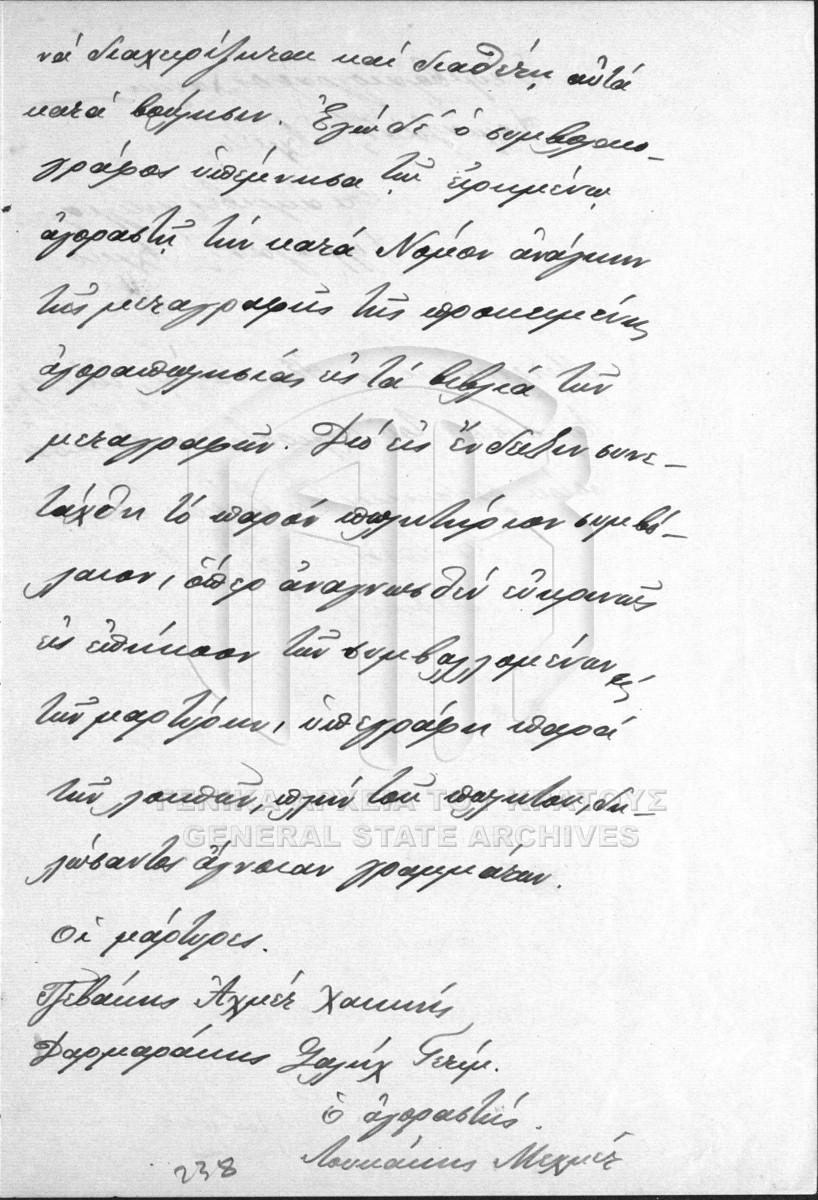 νά διαχειρίζηται καί διαθέτῃ αὐτά
κατά βούλησιν. Ἐγώ δέ ὁ συμβολαιο-
γράφος ὑπέμνησα τῷ εἰρημένῳ
ἀγοραστῇ τήν κατά Νόμον ἀνάγκην
τῆς μεταγραφῆς τῆς προκειμένης
ἀγοραπωλησίας εἰς τά βιβλία τῶν
μεταγραφῶν. Διό εἰς ἔνδειξιν συνε-
τάχθη τό παρόν πωλητήριον συμβό-
λαιον, ὅπερ ἀναγνωσθέν εὐκρινῶς
εἰς ἐπήκοον τῶν συμβαλλομένων κ
τῶν μαρτύρων, ὑπεγράφη παρά
τῶν λοιπῶν, πλήν τοῦ πωλητοῦ, δη-
λώσαντος ἄγνοιαν γραμμάτων.
Οἱ μάρτυρες.
Ἀχμέτ Χακκῆς
Δαρμαράκης Σαλήχ
ὁ ἀγοραστής.
Λουκάκης Μεχμέτ
238
ΓΕΝΙΚΑ ΑΡΧΕΙΑ ΤΟΥ ΚΡΑΤΟΥΣ
GENERAL STATE ARCHIVES